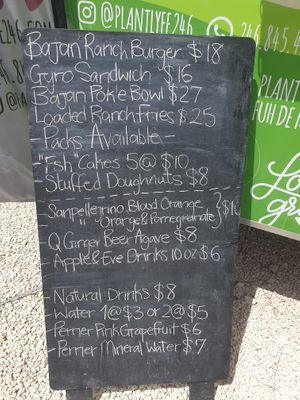 @PLANTLYFE246
246.845.4
@
PLANT
FUH DE
Lo
gr
Bajan Ranch Burger $18
Gyro Sandwich $16
Bajan Poké Bowl $27
Loaded Ranch Fries $25
Packs Available -
"Fish" Cakes 5@ $10
Stuffed Doughnuts $8
- Sanpellegrino Blood Orange,
" Orange & Pomegranate } $10
- Q Ginger Beer Agave $8
- Apple & Eve Drinks 10oz $6
- Natural Drinks $8
- Water 1@$3 or 2@$5
- Perrier Pink Grapefruit $6
- Perrier Mineral Water $7